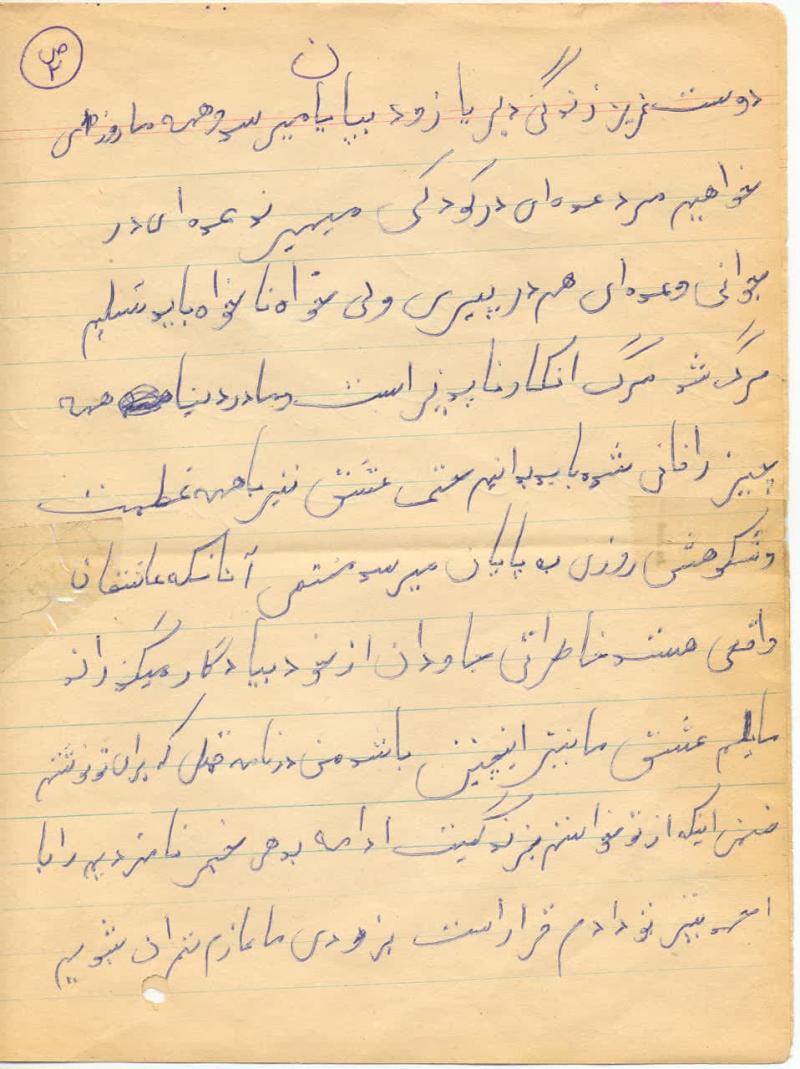 ص ۲
دوست عزیز زندگی دیر یا زود بپایان میرسد و همه ما روزی
خواهیم مرد عده ای در کودکی میمیرند عده ای در
جوانی و عده ای هم در پیری ولی خواه ناخواه باید تسلیم
مرگ شد مرگ انکار ناپذیر است و ما در دنیا همه
چیز را فانی شده باید بدانیم حتی عشق نیز با همه عظمت
و شکوهش روزی به پایان میرسد منتهی آنانکه عاشقان
واقعی هستند خاطراتی جاودان از خود بیادگار میگذراند
مایلم عشق ما نیز اینچنین باشد من در نامه قبل که برای تو نوشتم
ضمن اینکه از تو خواستم بزندگیت ادامه بدهی خبر نامزدیم را با
نیز بتو دادم قرار است بزودی ما عازم تهران شویم